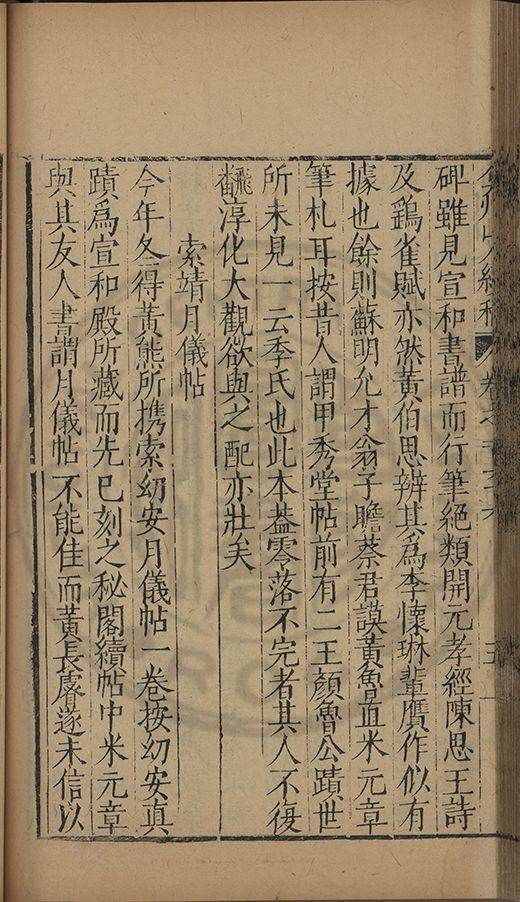 碑雖見宣和書譜而行筆絕類開元孝經陳思王詩
及鷂雀賦亦然黃伯思辨其為李懷琳輩贗作似有
據也餘則蘇明允才翁子瞻蔡君謨黃魯直米元章
筆札耳按昔人謂甲秀堂帖前有二王顏魯公蹟世
所未見一云季氏也此本葢零落不完者其人不復
飜淳化大觀欲與之配亦壯矣
索靖月儀帖
今年冬得黃熊所携索幼安月儀帖一卷按幼安真
蹟爲宣和殿所藏而先已刻之秘閣續帖中米元章
與其友人書謂月儀帖不能佳而黃長睿遂未信以